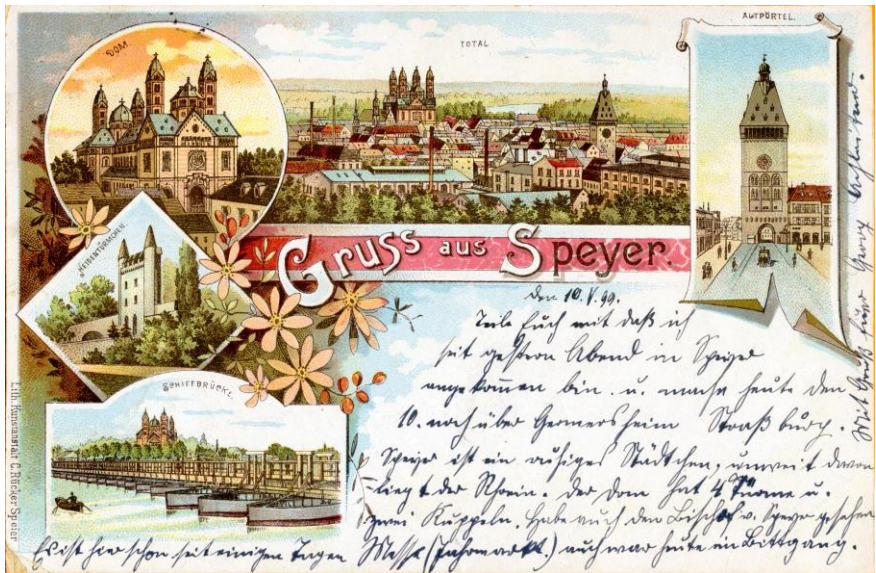 DOM.
TOTAL
ALTPÖRTEL.
HEIDENTÜRMCHEN.
Gruss aus Speyer.
SCHIFFBRÜCKE.
Lith. Kunstanstalt C. Dücker Speier
den 10. V. 99.
Teile Euch mit daß ich
seit gestern Abend in Speyer
angekommen bin. u. mache heute den
10. noch über Germersheim Straßburg.
Speyer ist ein ruhiges Städtchen, unweit davon
liegt der Rhein. der Dom hat 4 Türme u.
zwei Kuppeln. habe auch den Bischof v. Speyer gesehen
Es ist hier schon seit einigen Tagen Messe (Jahrmarkt.) auch war heute ein Bittgang.
Mit Gruß Euer Georg